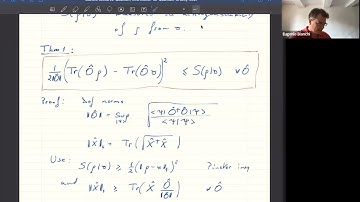 S(ρ|σ)
of ρ from σ.
Thm 1:
1/(2‖Ô‖²) (Tr(Ôρ) − Tr(Ôσ))² ≤ S(ρ|σ) ∀Ô
Proof: Def norms
‖Ô‖ = Sup |ψ> √(<ψ|Ô†Ô|ψ> / <ψ|ψ>)
‖X̂‖₁ = Tr(√(X̂†X̂))
Use: S(ρ|σ) ≥ ½ (‖ρ−σ‖₁)² Pinsker ineq
and ‖X̂‖₁ ≥ Tr(X̂ Ô/‖Ô‖) ∀Ô
Eugenio Bianchi